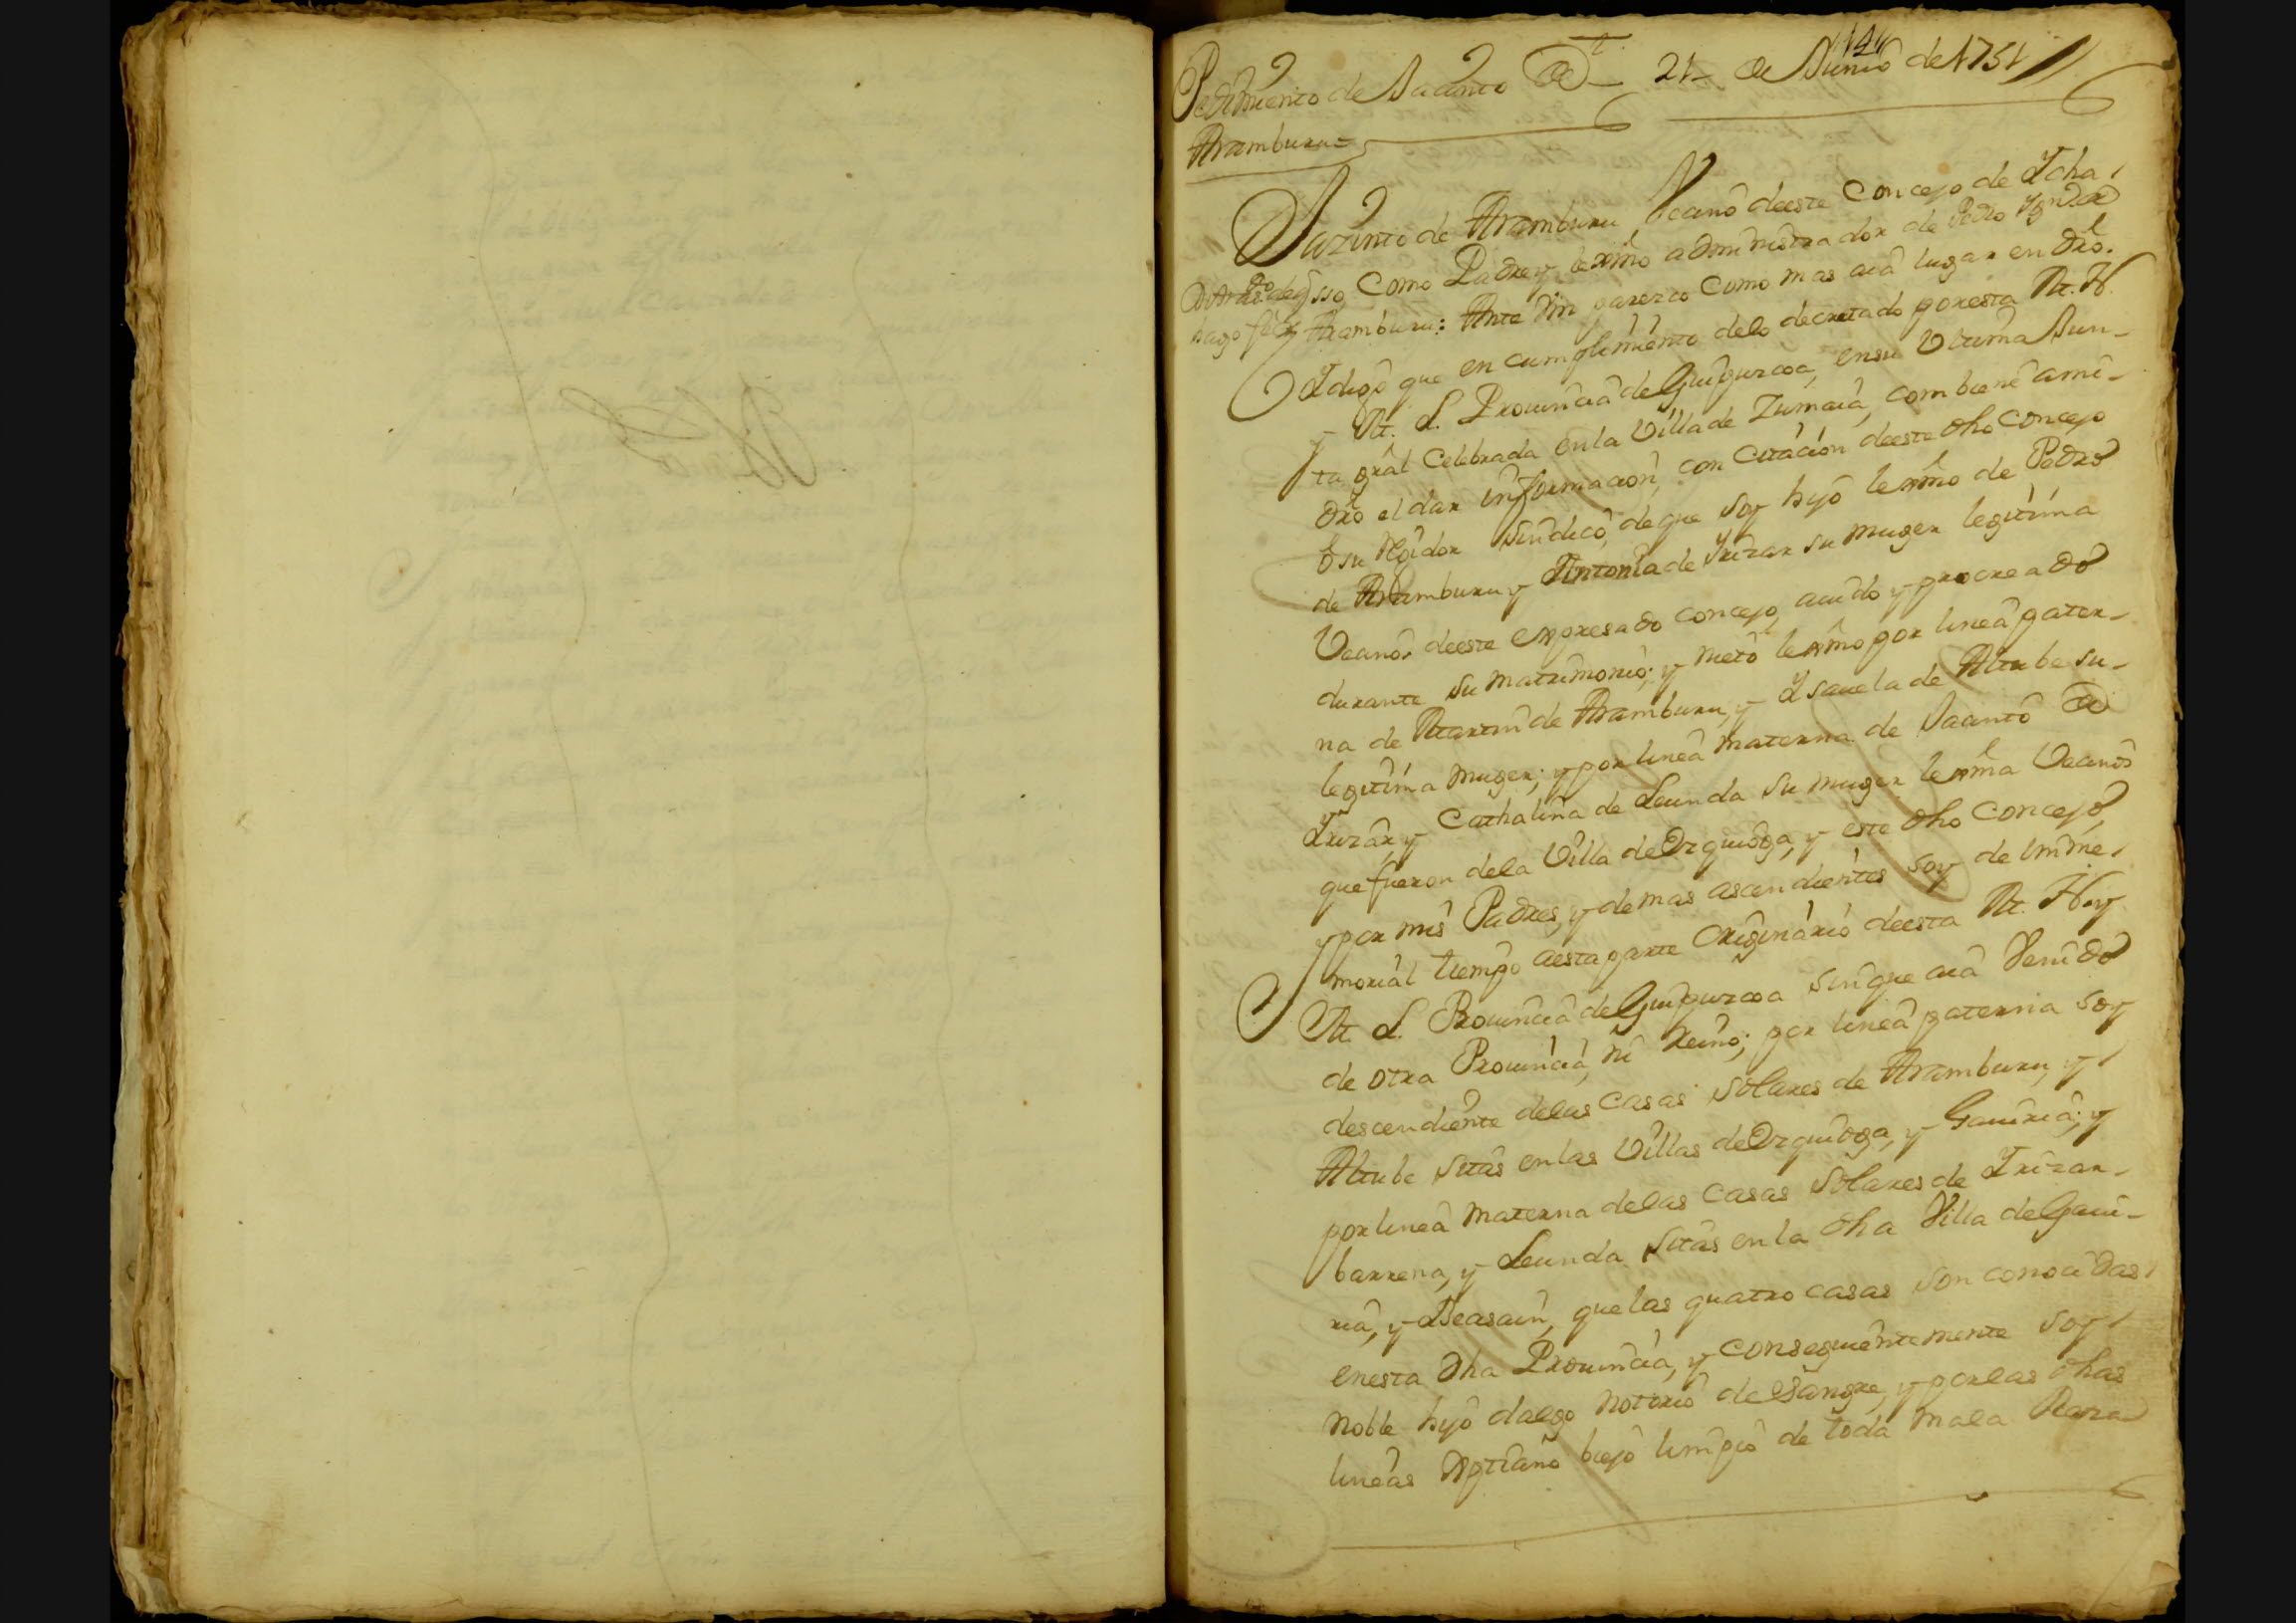 141
Pedimiento de Jacinto de 21 de Junio de 1751
Aramburu=
Jazinto de Aramburu, Vecino deeste Concejo de Icha
sso, Como Padre y lexmo administrador de Pedro Ign.o de
Aramburu: Ante Vm parezco como mas aia lugar en dro.
I digo que en cumplimiento delo decretado poresta M. N.
y M. L. Prouincia de Guipuzcoa, ensu Vltima Jun-
ta gral Celebrada en la Villa de Zumaia, combiene ami-
dro el dar informacion, con Citacion deeste dho Concejo
ó su Rexidor Sindico, de que soy hijo lexmo de Pedro
de Aramburu y Antonia de Yrizar su muger legitima
Vecinos deeste expresado concejo, auido y procreado
durante su matrimonio; y nieto lexmo por linea pater-
na de Martin de Aramburu, y Isauela de Altube su-
legitima muger; y por linea materna de Jacinto de
Irizar, y Cathalina de Leunda su muger lexma Vecinos
que fueron dela Villa de Ezquioga, y este dho Concejo,
y por mis Padres, y demas ascendientes soy de Ymme
morial tiempo aesta parte originario deesta M. N. y
M. L. Prouincia de Guipuzcoa sinque aia Venido
de otra Prouincia, ni Reino; por linea paterna soy
descendiente delas Casas Solares de Aramburu, y
Altube sitas en las Villas de Ezquioga, y Gauiria; y
por linea materna delas casas Solares de Irizar-
barrena, y Leunda sitas en la dha Villa de Gaui-
ria, y Beasain, que las quatro casas son conocidas
enesta dha Prouincia, y conseguientemente soy
noble hijo dalgo notorio de sangre, y por las dhas
lineas Xptiano biejo limpio de toda mala Raza